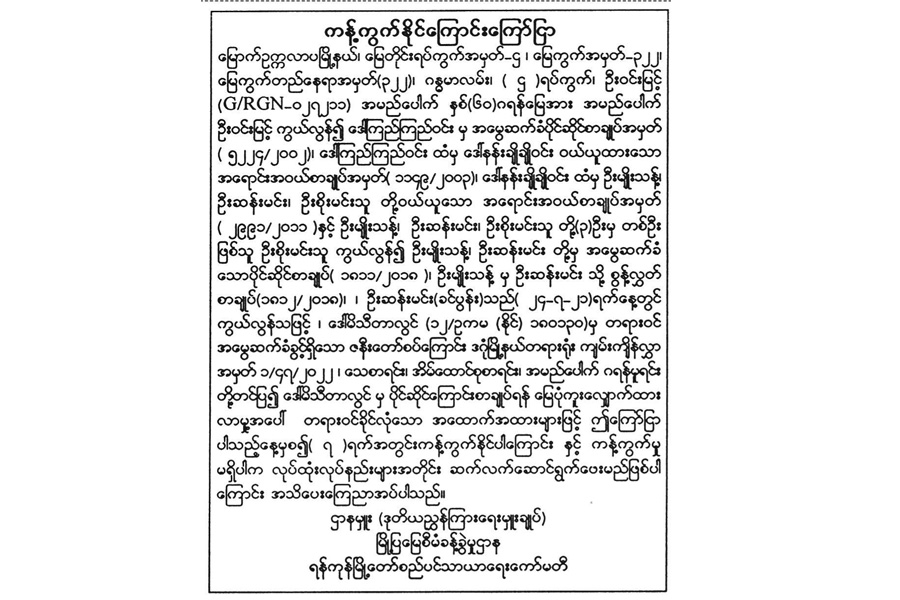 ကန့်ကွက်နိုင်ကြောင်းကြော်ငြာ
မြောက်ဥက္ကလာပမြို့နယ်၊ မြေတိုင်းရပ်ကွက်အမှတ်-၄၊ မြေကွက်အမှတ်-၃၂၂၊
မြေကွက်တည်နေရာအမှတ်(၃၂၂)၊ ဂန္ဓမာလမ်း၊ ( ၄ )ရပ်ကွက်၊ ဦးဝင်းမြင့်
(G/RGN-၀၂၇၂၁၁) အမည်ပေါက် နှစ်(၆၀)ဂရန်မြေအား အမည်ပေါက်
ဦးဝင်းမြင့် ကွယ်လွန်၍ ဒေါ်ကြည်ကြည်ဝင်း မှ အမွေဆက်ခံပိုင်ဆိုင်စာချုပ်အမှတ်
( ၅၂၂၄/၂၀၀၂)၊ ဒေါ်ကြည်ကြည်ဝင်း ထံမှ ဒေါ်နန်းချိုချိုဝင်း ဝယ်ယူထားသော
အရောင်းအဝယ်စာချုပ်အမှတ်( ၁၁၄၉/၂၀၀၃)၊ ဒေါ်နန်းချိုချိုဝင်း ထံမှ ဦးမျိုးသန့်၊
ဦးဆန်းမင်း၊ ဦးစိုးမင်းသူ တို့ဝယ်ယူသော အရောင်းအဝယ်စာချုပ်အမှတ်
( ၂၉၉၁/၂၀၁၁ )နှင့် ဦးမျိုးသန့်၊ ဦးဆန်းမင်း၊ ဦးစိုးမင်းသူ တို့(၃)ဦးမှ တစ်ဦး
ဖြစ်သူ ဦးစိုးမင်းသူ ကွယ်လွန်၍ ဦးမျိုးသန့်၊ ဦးဆန်းမင်း တို့မှ အမွေဆက်ခံ
သောပိုင်ဆိုင်စာချုပ်( ၁၈၁၁/၂၀၁၈ )၊ ဦးမျိုးသန့် မှ ဦးဆန်းမင်း သို့ စွန့်လွှတ်
စာချုပ်(၁၈၁၂/၂၀၁၈)၊ ၊ ဦးဆန်းမင်း(ခင်ပွန်း)သည်( ၂၄-၇-၂၁)ရက်နေ့တွင်
ကွယ်လွန်သဖြင့် ၊ ဒေါ်မိသီတာလွင် (၁၂/ဥကမ (နိုင်) ၁၈၀၁၃၀)မှ တရားဝင်
အမွေဆက်ခံခွင့်ရှိသော ဇနီးတော်စပ်ကြောင်း ဒဂုံမြို့နယ်တရားရုံး ကျမ်းကျိန်လွှာ
အမှတ် ၁/၄၇/၂၀၂၂ ၊ သေစာရင်း၊ အိမ်ထောင်စုစာရင်း၊ အမည်ပေါက် ဂရန်မူရင်း
တို့တင်ပြ၍ ဒေါ်မိသီတာလွင် မှ ပိုင်ဆိုင်ကြောင်းစာချုပ်ရန် မြေပုံကူးလျှောက်ထား
လာမှုအပေါ် တရားဝင်ခိုင်လုံသော အထောက်အထားများဖြင့် ဤကြော်ငြာ
ပါသည့်နေ့မှစ၍( ၇ )ရက်အတွင်းကန့်ကွက်နိုင်ပါကြောင်း နှင့် ကန့်ကွက်မှု
မရှိပါက လုပ်ထုံးလုပ်နည်းများအတိုင်း ဆက်လက်ဆောင်ရွက်ပေးမည်ဖြစ်ပါ
ကြောင်း အသိပေးကြေညာအပ်ပါသည်။
ဌာနမှူး (ဒုတိယညွှန်ကြားရေးမှူးချုပ်)
မြို့ပြမြေစီမံခန့်ခွဲမှုဌာန
ရန်ကုန်မြို့တော်စည်ပင်သာယာရေးကော်မတီ